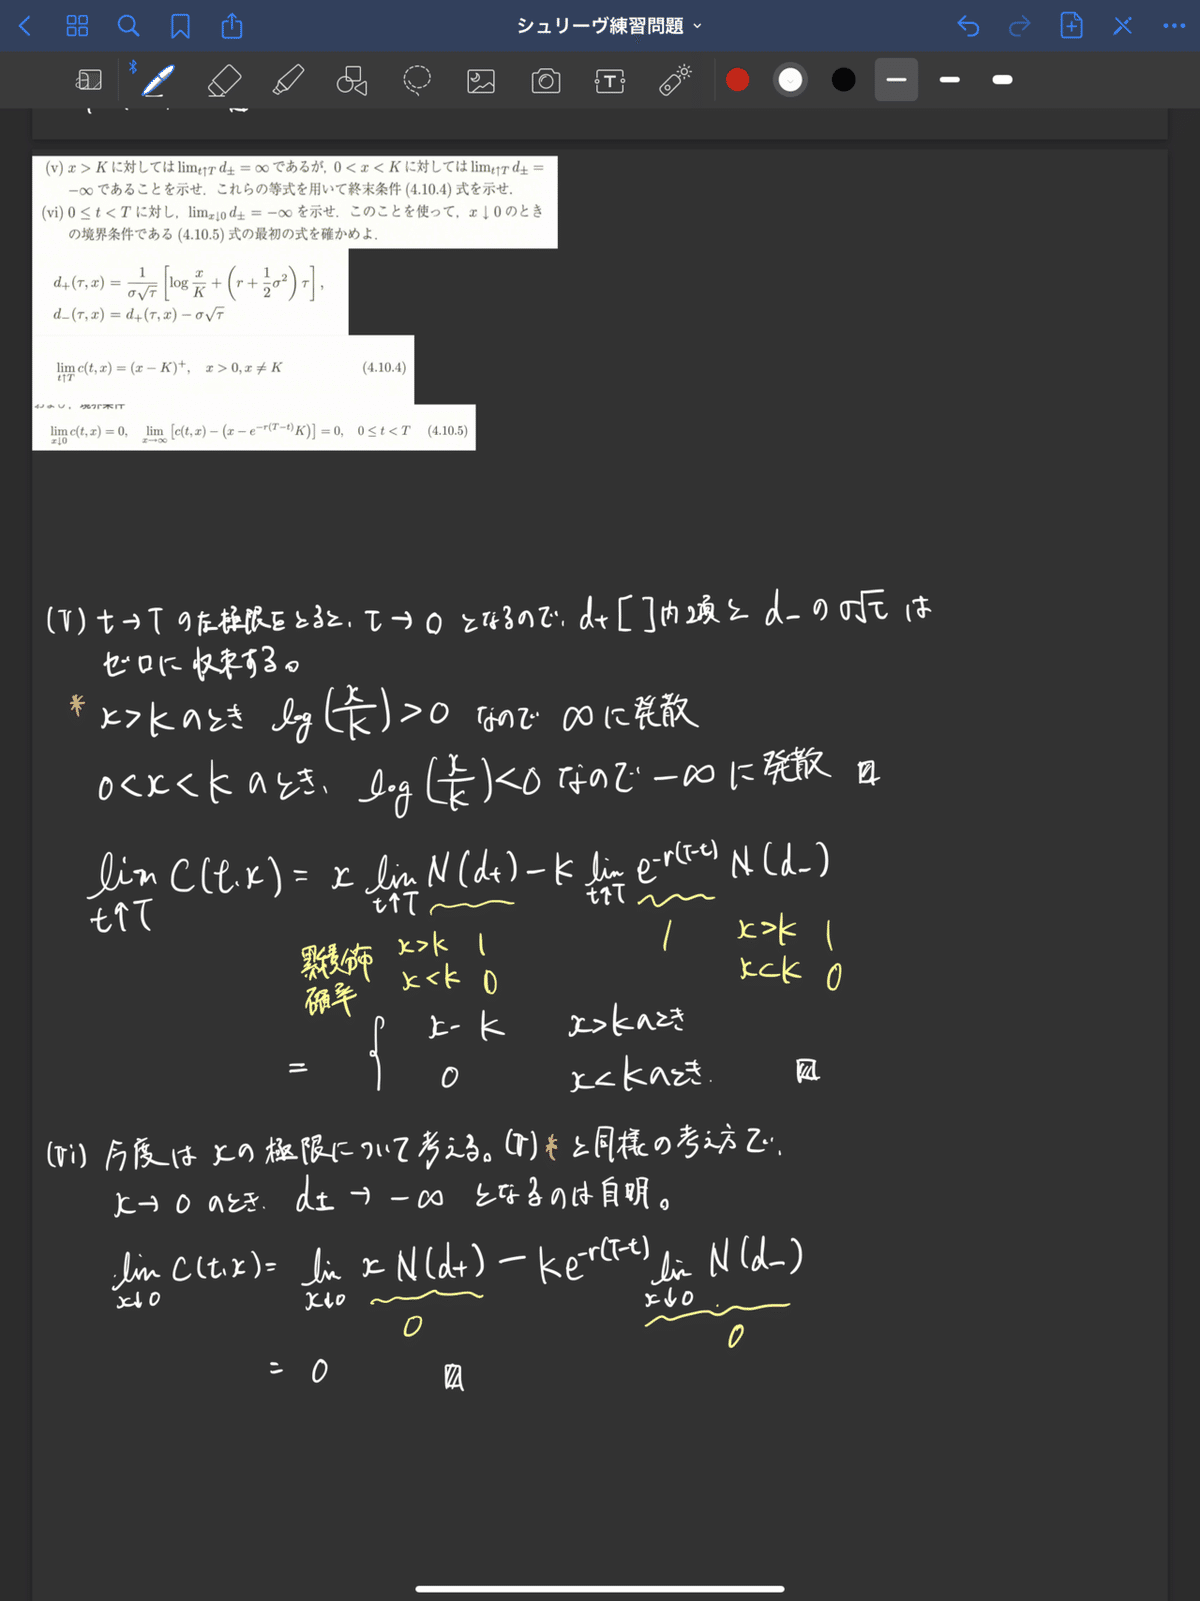 シュリーヴ練習問題
(v) x > K に対しては lim_{t↑T} d± = ∞ であるが, 0 < x < K に対しては lim_{t↑T} d± =
−∞ であることを示せ. これらの等式を用いて終末条件 (4.10.4) 式を示せ.
(vi) 0 ≤ t < T に対し, lim_{x↓0} d± = −∞ を示せ. このことを使って, x ↓ 0 のとき
の境界条件である (4.10.5) 式の最初の式を確かめよ.
d₊(τ, x) = 1/(σ√τ) [log x/K + (r + 1/2 σ²) τ],
d₋(τ, x) = d₊(τ, x) − σ√τ
lim_{t↑T} c(t, x) = (x − K)⁺, x > 0, x ≠ K (4.10.4)
lim_{x↓0} c(t, x) = 0, lim_{x→∞} [c(t, x) − (x − e^{−r(T−t)}K)] = 0, 0 ≤ t < T (4.10.5)
(V) t→T の左極限をとると, τ→0 となるので, d₊ [ ]内2項と d₋ の σ√τ は
ゼロに収束する。
* x>K のとき log(x/K)>0 なので ∞ に発散
0<x<K のとき, log(x/K)<0 なので −∞ に発散
lim_{t↑T} C(t,x) = x lim_{t↑T} N(d₊) − K lim_{t↑T} e^{-r(T-t)} N(d₋)
累積分布 x>K 1 1 x>K 1
確率 x<K 0 x<K 0
= { x−K x>Kのとき
0 x<Kのとき.
(Vi) 今度は xの極限について考える。(V)* と同様の考え方で,
x→0 のとき. d± → −∞ となるのは自明。
lim_{x↓0} C(t,x) = lim_{x↓0} x N(d₊) − Ke^{-r(T-t)} lim_{x↓0} N(d₋)
0 0
= 0